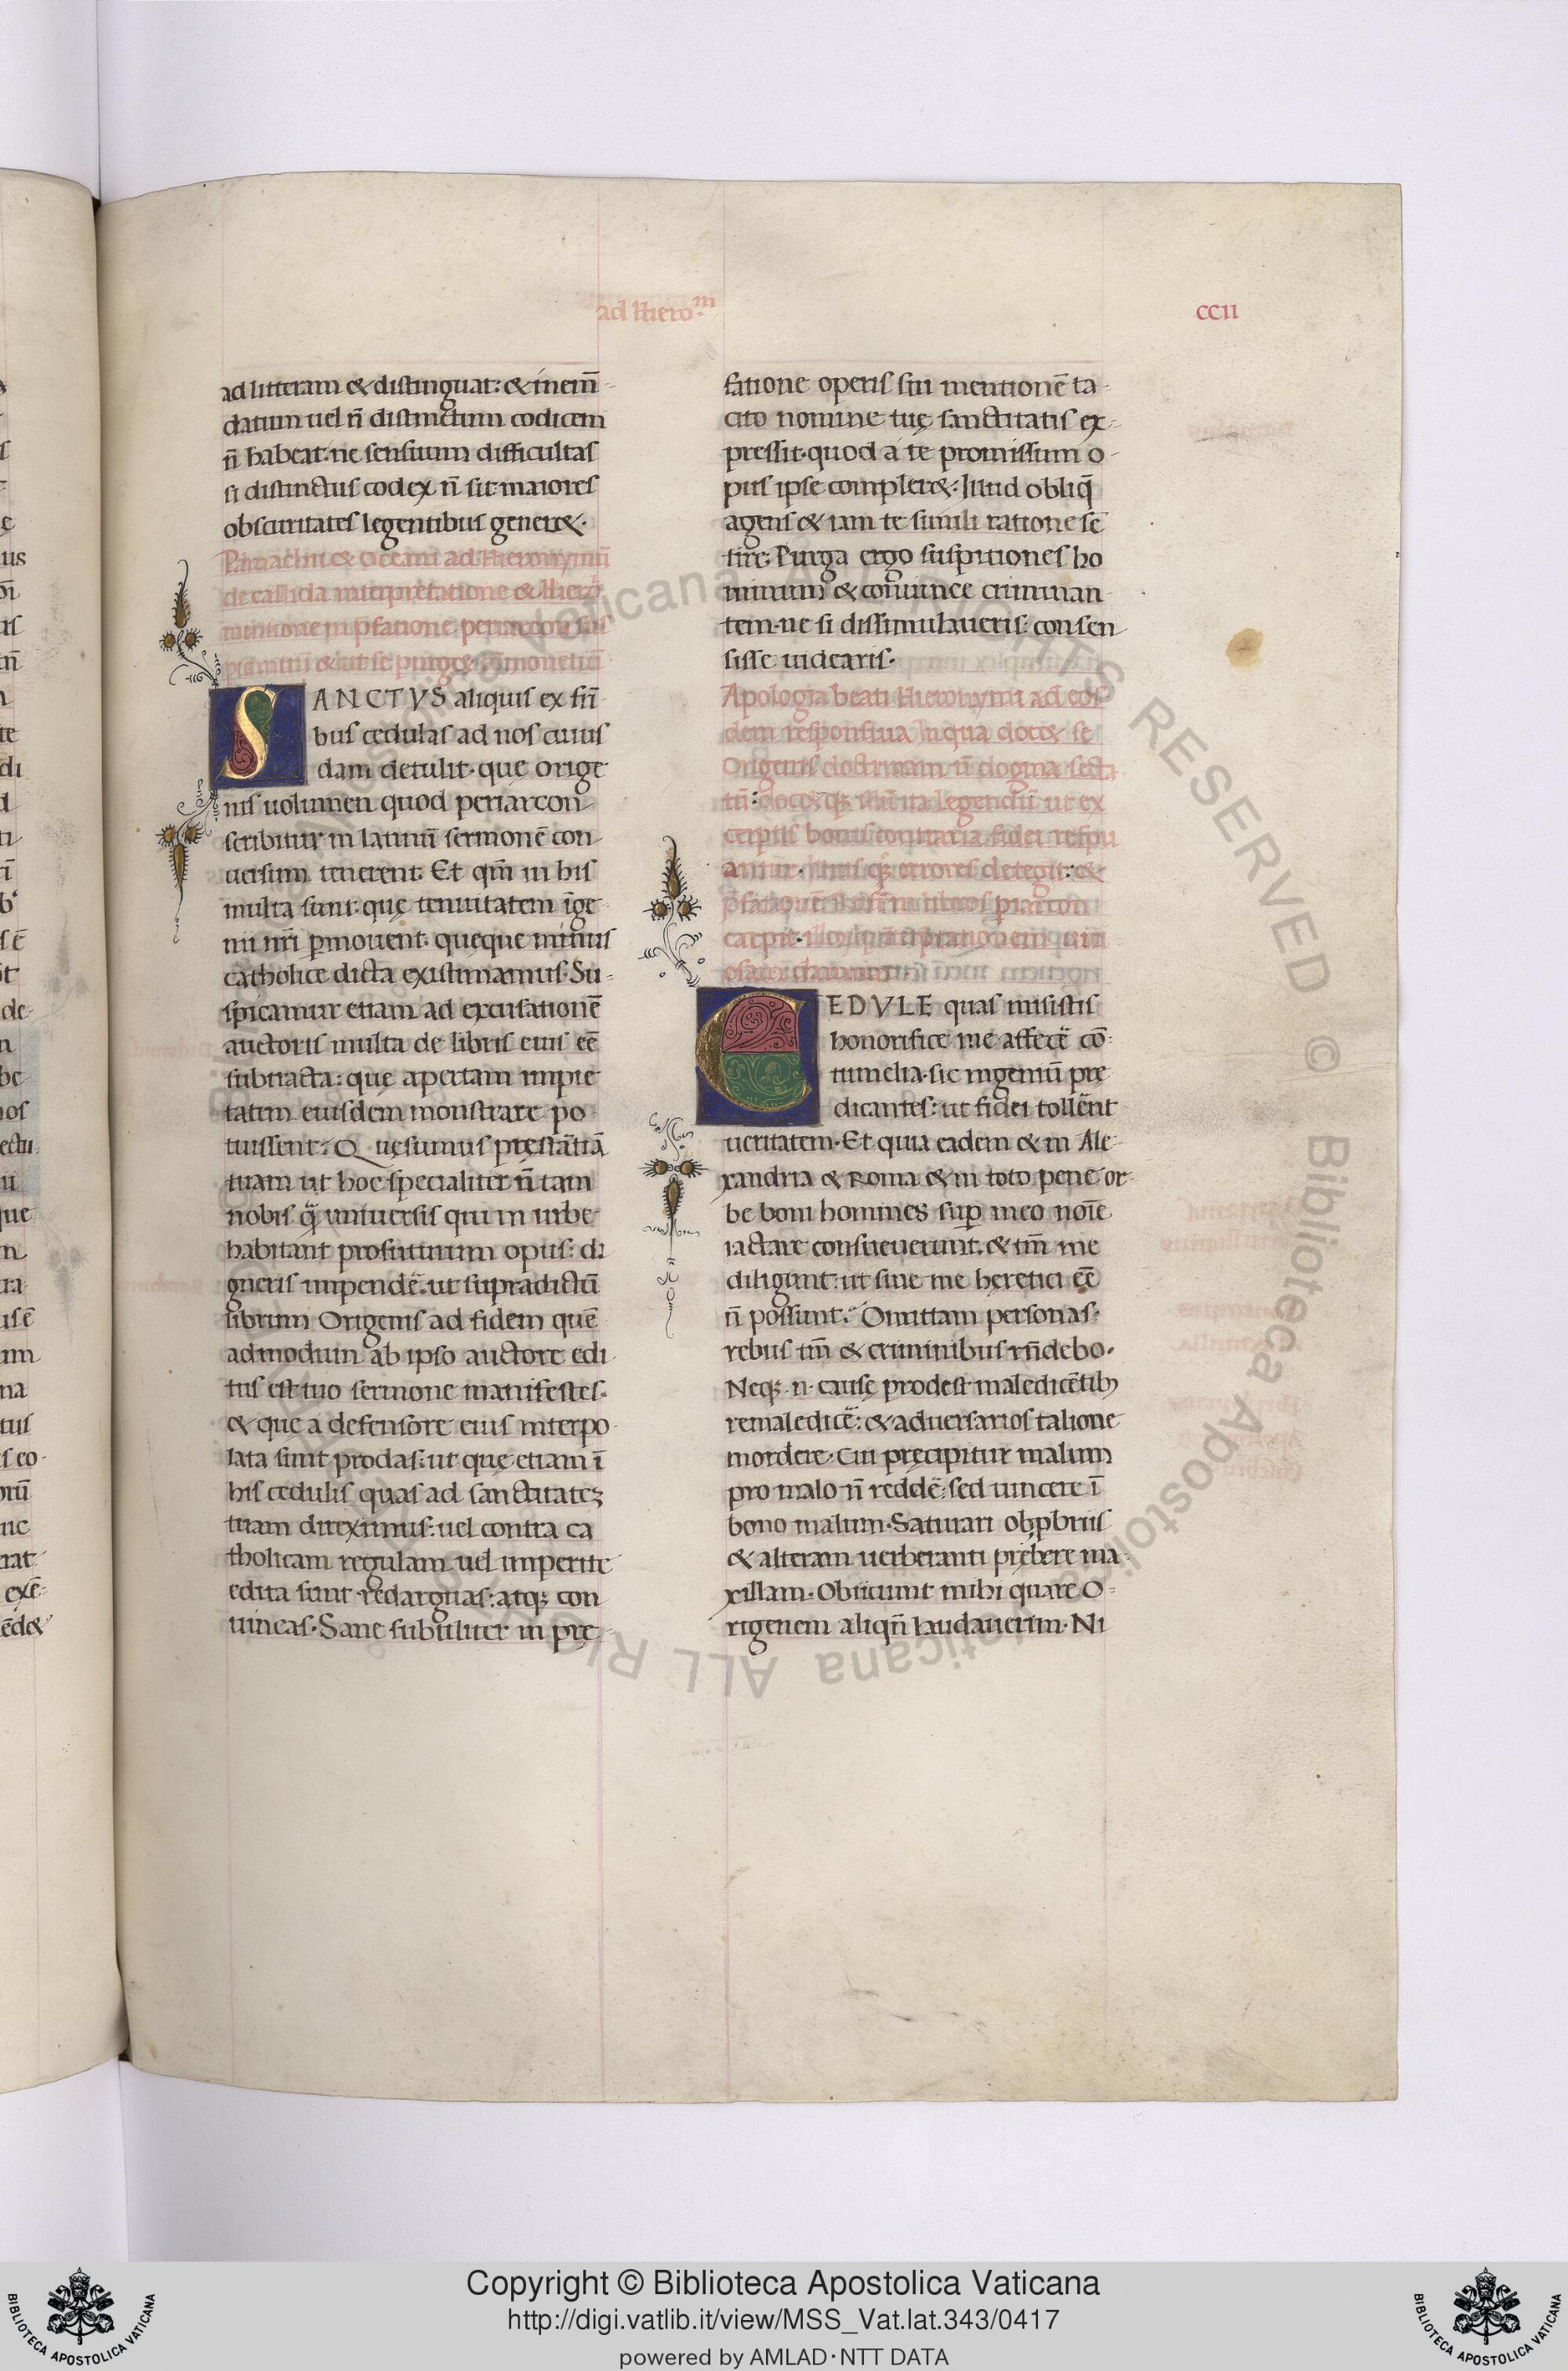 ad Hiero.m
ccii
ad litteram & distinguat: & inem̄-
datum uel n̄ distinctum codicem
n̄ habeat. ne sensuum difficultas
si distinctus codex n̄ sit. maiores
obscuritates legentibus gener&.
Pamachii & Oceani ad Hieronymū
de callida interpretatione &
mentione in p̄fatione periarcon
& ut se purg&.
SANCTVS aliquis ex fr̄i
bus cedulas ad nos cuius
dam detulit. que orige
nis uolumen quod periarcon
scribitur in latinū sermonē con
uersum tenerent. Et qm̄ in his
multa sunt. quę tenuitatem īge-
nii nr̄i ꝑmouent. queque minus
catholice dicta existimamus. Su-
spicamur etiam ad excusationē
auctoris multa de libris eius eē
subtracta: quę apertam impie
tatem eiusdem monstrare po
tuissent. Quęsumus pręstātiā
tuam ut hoc specialiter n̄ tam
nobis q̄ uniuersis qui in urbe
habitant profuturum opus: di
gneris impendē. ut supradictū
librum Origenis ad fidem quē
admodum ab ipso auctore edi
tus est tuo sermone manifestes.
& que a defensore eius interpo
lata sunt prodas: ut quę etiam ī
his cedulis quas ad sanctitatez
tuam direximus: uel contra ca
tholicam regulam uel imperite
edita sunt redarguas: atqꝫ con
uincas. Sane subtiliter in prę
fatione operis sui mentionē ta-
cito nomine tuę sanctitatis ex-
pressit. quod a te promissum o-
pus ipse compler&. Illud obliq̄
agens & iam te simili ratione sē
tire. Purga ergo suspitiones ho
minum & conuince criminan
tem. ne si dissimulaueris: consen
sisse uidearis.
Apologia beati Hieronymi ad eos
dem responsiua In qua doc& se
Origenis doctrinam n̄ dogma secta
tū: doc& qꝫ illū ita legendū ut ex
cerptis bonis contraria fidei respu
antur. qꝫ errores detegit: &
carpit. interpretationem
CEDVLE quas misistis
honorifice me affecē cō-
tumelia. sic ingeniū prę
dicantes: ut fidei tollērit
ueritatem. Et quia eadem & in Ale-
xandria & Roma & in toto pene or-
be boni homines suꝑ meo noīe
iactare consueuerunt. & tm̄ me
diligunt: ut sine me heretici eē
n̄ possunt. Omittam personas.
rebus tm̄ & criminibus rn̄debo.
Neqꝫ .n. causę prodest maledicētibꝫ
remaledicē: & aduersarios talione
mordere. Cui pręcipitur malum
pro malo n̄ reddē: sed uincere ī
bono malum. Saturari obꝓbriis
& alteram uerberanti prębere ma-
xillam. Obiiciunt mihi quare O-
rigenem aliqn̄ laudauerim. Ni
Copyright © Biblioteca Apostolica Vaticana
http://digi.vatlib.it/view/MSS_Vat.lat.343/0417
powered by AMLAD·NTT DATA
BIBLIOTECA APOSTOLICA VATICANA
BIBLIOTECA APOSTOLICA VATICANA